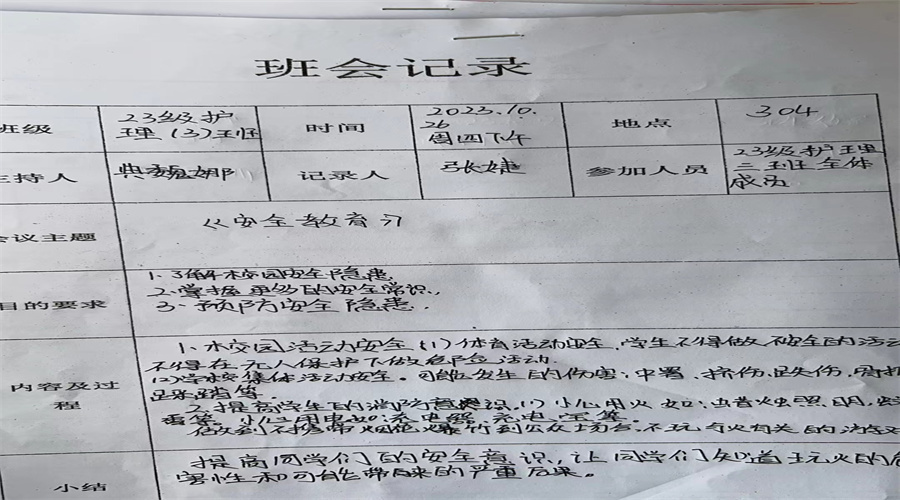 班会记录
班级 23级护理(3)班 时间 2023.10.26 周四下午 地点 304
主持人 典魏娜 记录人 张婕 参加人员 23级护理三班全体成员
会议主题 《安全教育》
目的要求
1.了解校园安全隐患
2.掌握更多的安全常识.
3.预防安全隐患.
内容及过程
1.校园活动安全.(1)体育活动安全.学生不得做不安全的活动
不得在无人保护下做危险活动.
(2)学校集体活动安全。可能发生的伤害:中暑、挤伤、
足踩踏等.
2.提高学生的消防意识.(1)小心用火 如:蜡烛照明,
香等.小心用电如:充电器,充电宝等.
做到不携带烟花爆竹到公众场合,不玩与火有关的
小结
提高同学们的安全意识,让同学们知道玩火的危
害性和可能带来的严重后果。